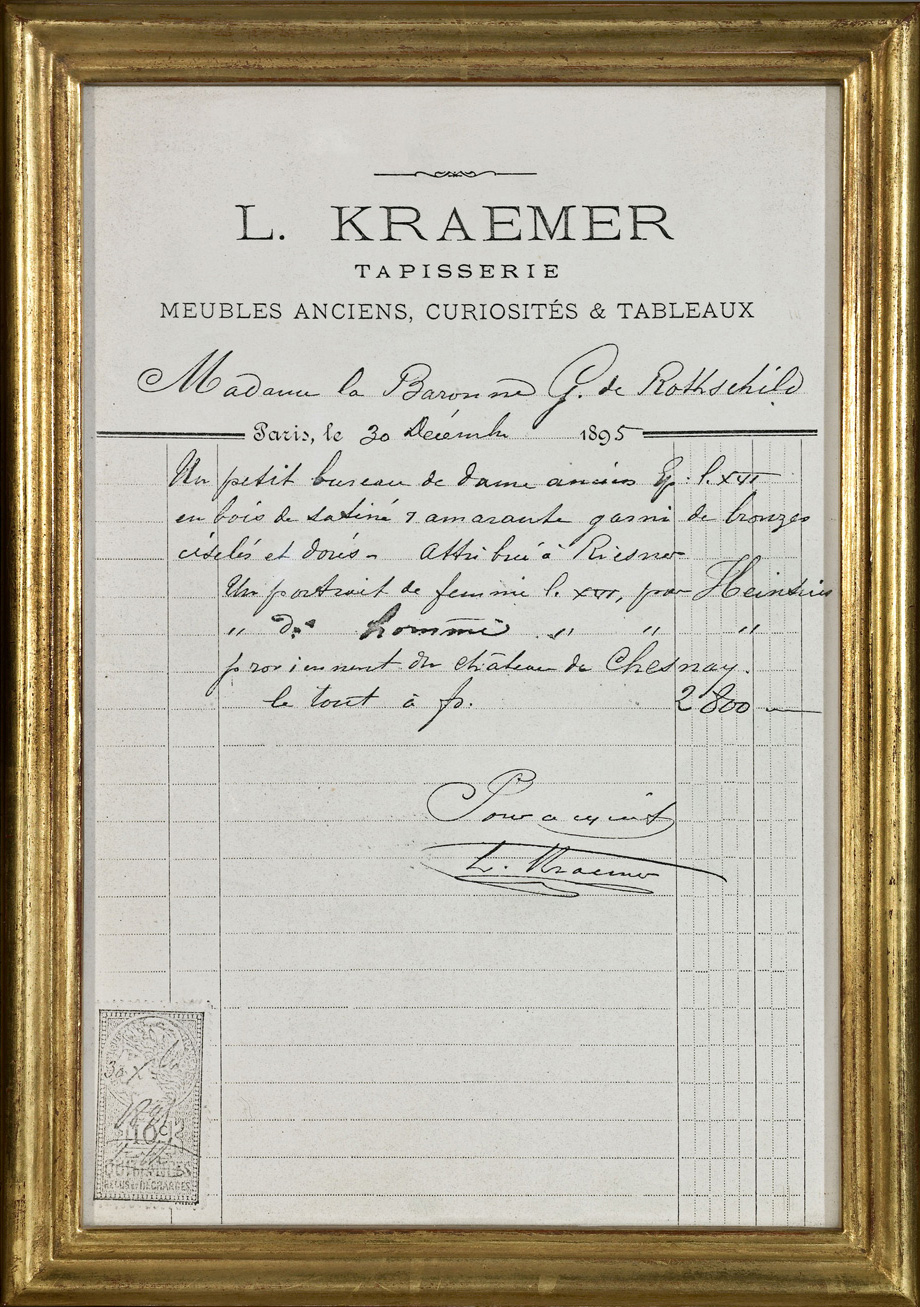 L. KRAEMER
TAPISSERIE
MEUBLES ANCIENS, CURIOSITÉS & TABLEAUX
Madame la Baronne G. de Rothschild
Paris, le 30 Décembre 1895
Un petit bureau de dame ancien Ep. L. XVI
en bois de satiné & amarante garni de bronzes
ciselés et dorés - Attribué à Riesner
Un portrait de femme L. XVI, par Heinsius
" do homme " " "
proviennent du château de Chesnay.
le tout à fs. 2800 —
Pour acquit
L. Kraemer
30 X
1895
10c
QUITTANCES
REÇUS ET DÉCHARGES